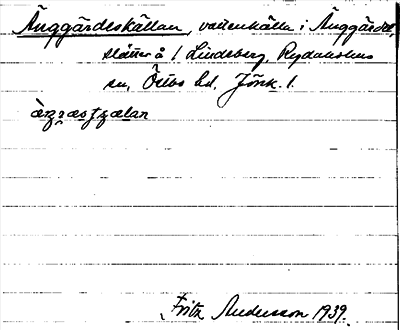 Änggärdeskällan, vattenkälla i Änggärdet,
slåtter å / Lindeberg, Rydaholms
sn, Östbo hd, Jönk. l.
Fritz Andersson 1939.